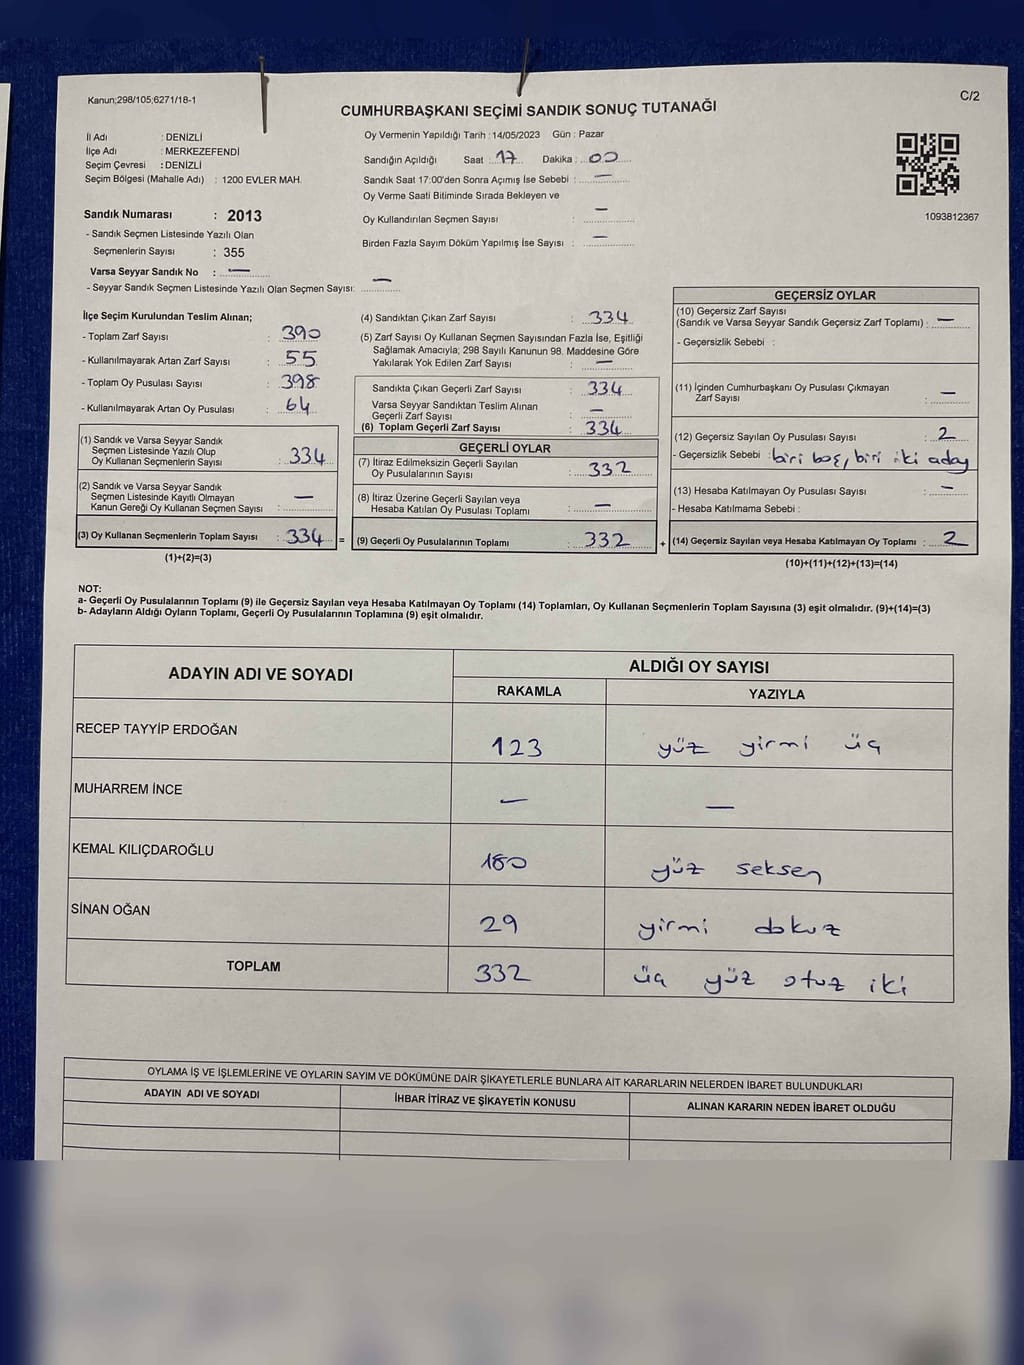 Kanun;298/105;6271/18-1
C/2
CUMHURBAŞKANI SEÇİMİ SANDIK SONUÇ TUTANAĞI
İl Adı : DENİZLİ
İlçe Adı : MERKEZEFENDİ
Seçim Çevresi : DENİZLİ
Seçim Bölgesi (Mahalle Adı) : 1200 EVLER MAH.
Sandık Numarası : 2013
- Sandık Seçmen Listesinde Yazılı Olan
Seçmenlerin Sayısı : 355
Varsa Seyyar Sandık No : —
- Seyyar Sandık Seçmen Listesinde Yazılı Olan Seçmen Sayısı: —
Oy Vermenin Yapıldığı Tarih : 14/05/2023 Gün : Pazar
Sandığın Açıldığı Saat : 17 Dakika : 00
Sandık Saat 17:00'den Sonra Açımış İse Sebebi : —
Oy Verme Saati Bitiminde Sırada Bekleyen ve
Oy Kullandırılan Seçmen Sayısı : —
Birden Fazla Sayım Döküm Yapılmış İse Sayısı : —
1093812367
İlçe Seçim Kurulundan Teslim Alınan;
- Toplam Zarf Sayısı : 390
- Kullanılmayarak Artan Zarf Sayısı : 55
- Toplam Oy Pusulası Sayısı : 398
- Kullanılmayarak Artan Oy Pusulası : 64
(1) Sandık ve Varsa Seyyar Sandık
Seçmen Listesinde Yazılı Olup
Oy Kullanan Seçmenlerin Sayısı : 334
(2) Sandık ve Varsa Seyyar Sandık
Seçmen Listesinde Kayıtlı Olmayan
Kanun Gereği Oy Kullanan Seçmen Sayısı : —
(3) Oy Kullanan Seçmenlerin Toplam Sayısı : 334 =
(1)+(2)=(3)
(4) Sandıktan Çıkan Zarf Sayısı : 334
(5) Zarf Sayısı Oy Kullanan Seçmen Sayısından Fazla İse, Eşitliği
Sağlamak Amacıyla; 298 Sayılı Kanunun 98. Maddesine Göre
Yakılarak Yok Edilen Zarf Sayısı : —
Sandıkta Çıkan Geçerli Zarf Sayısı : 334
Varsa Seyyar Sandıktan Teslim Alınan
Geçerli Zarf Sayısı : —
(6) Toplam Geçerli Zarf Sayısı : 334
GEÇERLİ OYLAR
(7) İtiraz Edilmeksizin Geçerli Sayılan
Oy Pusulalarının Sayısı : 332
(8) İtiraz Üzerine Geçerli Sayılan veya
Hesaba Katılan Oy Pusulası Toplamı : —
(9) Geçerli Oy Pusulalarının Toplamı : 332 +
GEÇERSİZ OYLAR
(10) Geçersiz Zarf Sayısı
(Sandık ve Varsa Seyyar Sandık Geçersiz Zarf Toplamı) : —
- Geçersizlik Sebebi :
(11) İçinden Cumhurbaşkanı Oy Pusulası Çıkmayan
Zarf Sayısı : —
(12) Geçersiz Sayılan Oy Pusulası Sayısı : 2
- Geçersizlik Sebebi : biri boş, biri iki aday
(13) Hesaba Katılmayan Oy Pusulası Sayısı : —
- Hesaba Katılmama Sebebi :
(14) Geçersiz Sayılan veya Hesaba Katılmayan Oy Toplamı : 2
(10)+(11)+(12)+(13)=(14)
NOT:
a- Geçerli Oy Pusulalarının Toplamı (9) ile Geçersiz Sayılan veya Hesaba Katılmayan Oy Toplamı (14) Toplamları, Oy Kullanan Seçmenlerin Toplam Sayısına (3) eşit olmalıdır. (9)+(14)=(3)
b- Adayların Aldığı Oyların Toplamı, Geçerli Oy Pusulalarının Toplamına (9) eşit olmalıdır.
ADAYIN ADI VE SOYADI
ALDIĞI OY SAYISI
RAKAMLA YAZIYLA
RECEP TAYYİP ERDOĞAN 123 yüz yirmi üç
MUHARREM İNCE — —
KEMAL KILIÇDAROĞLU 180 yüz seksen
SİNAN OĞAN 29 yirmi dokuz
TOPLAM 332 üç yüz otuz iki
OYLAMA İŞ VE İŞLEMLERİNE VE OYLARIN SAYIM VE DÖKÜMÜNE DAİR ŞİKAYETLERLE BUNLARA AİT KARARLARIN NELERDEN İBARET BULUNDUKLARI
ADAYIN ADI VE SOYADI İHBAR İTİRAZ VE ŞİKAYETİN KONUSU ALINAN KARARIN NEDEN İBARET OLDUĞU